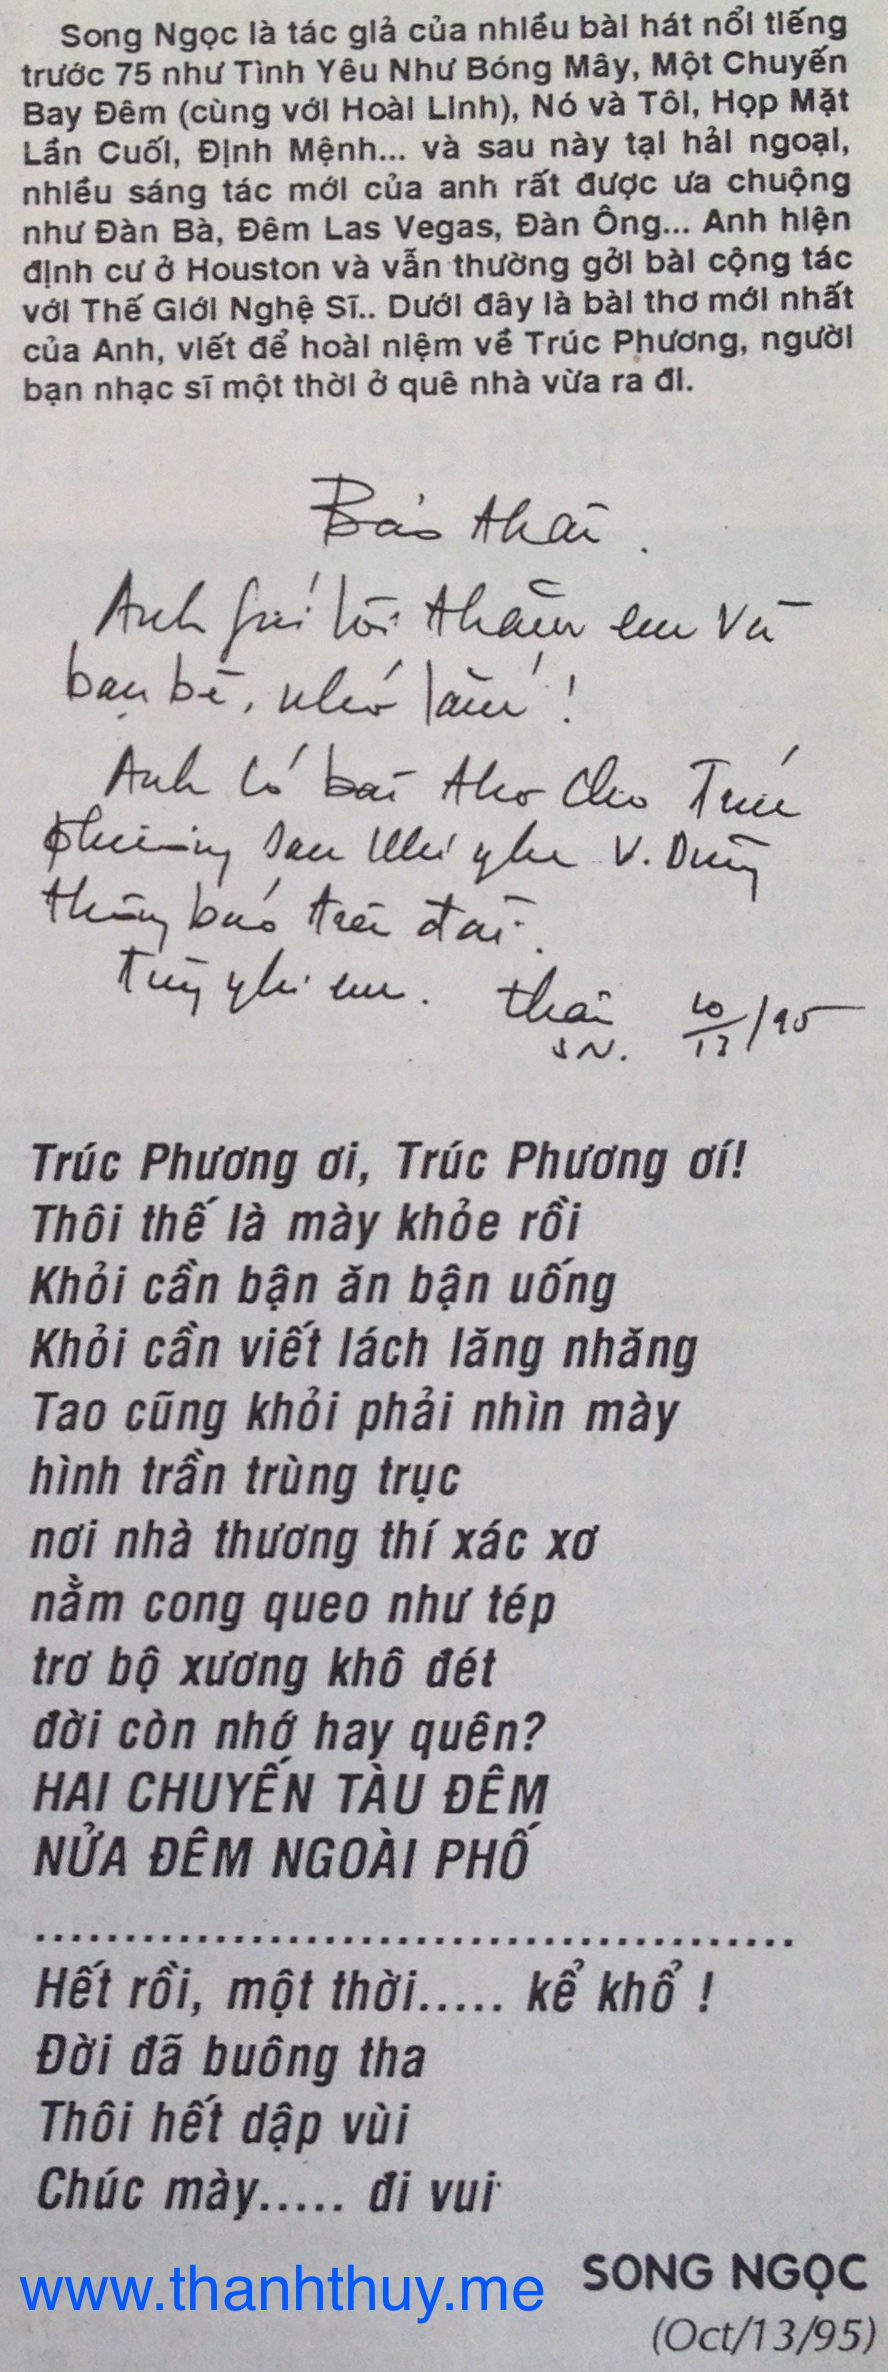 Song Ngọc là tác giả của nhiều bài hát nổi tiếng
trước 75 như Tình Yêu Như Bóng Mây, Một Chuyến
Bay Đêm (cùng với Hoài Linh), Nó và Tôi, Họp Mặt
Lần Cuối, Định Mệnh... và sau này tại hải ngoại,
nhiều sáng tác mới của anh rất được ưa chuộng
như Đàn Bà, Đêm Las Vegas, Đàn Ông... Anh hiện
định cư ở Houston và vẫn thường gởi bài cộng tác
với Thế Giới Nghệ Sĩ.. Dưới đây là bài thơ mới nhất
của Anh, viết để hoài niệm về Trúc Phương, người
bạn nhạc sĩ một thời ở quê nhà vừa ra đi.
Bảo thân.
Anh gởi lời thăm em và
bạn bè, nhớ lắm!
Anh có bài thơ cho Trúc
Phương sau khi nghe V. Dũng
thông báo trên đài.
Tùy nghi em. thân 10/13/95
SN.
Trúc Phương ơi, Trúc Phương ơí!
Thôi thế là mày khỏe rồi
Khỏi cần bận ăn bận uống
Khỏi cần viết lách lăng nhăng
Tao cũng khỏi phải nhìn mày
hình trần trùng trục
nơi nhà thương thí xác xơ
nằm cong queo như tép
trơ bộ xương khô đét
đời còn nhớ hay quên?
HAI CHUYẾN TÀU ĐÊM
NỬA ĐÊM NGOÀI PHỐ
..........................................
Hết rồi, một thời..... kể khổ !
Đời đã buông tha
Thôi hết dập vùi
Chúc mày..... đi vui
SONG NGỌC
www.thanhthuy.me
(Oct/13/95)